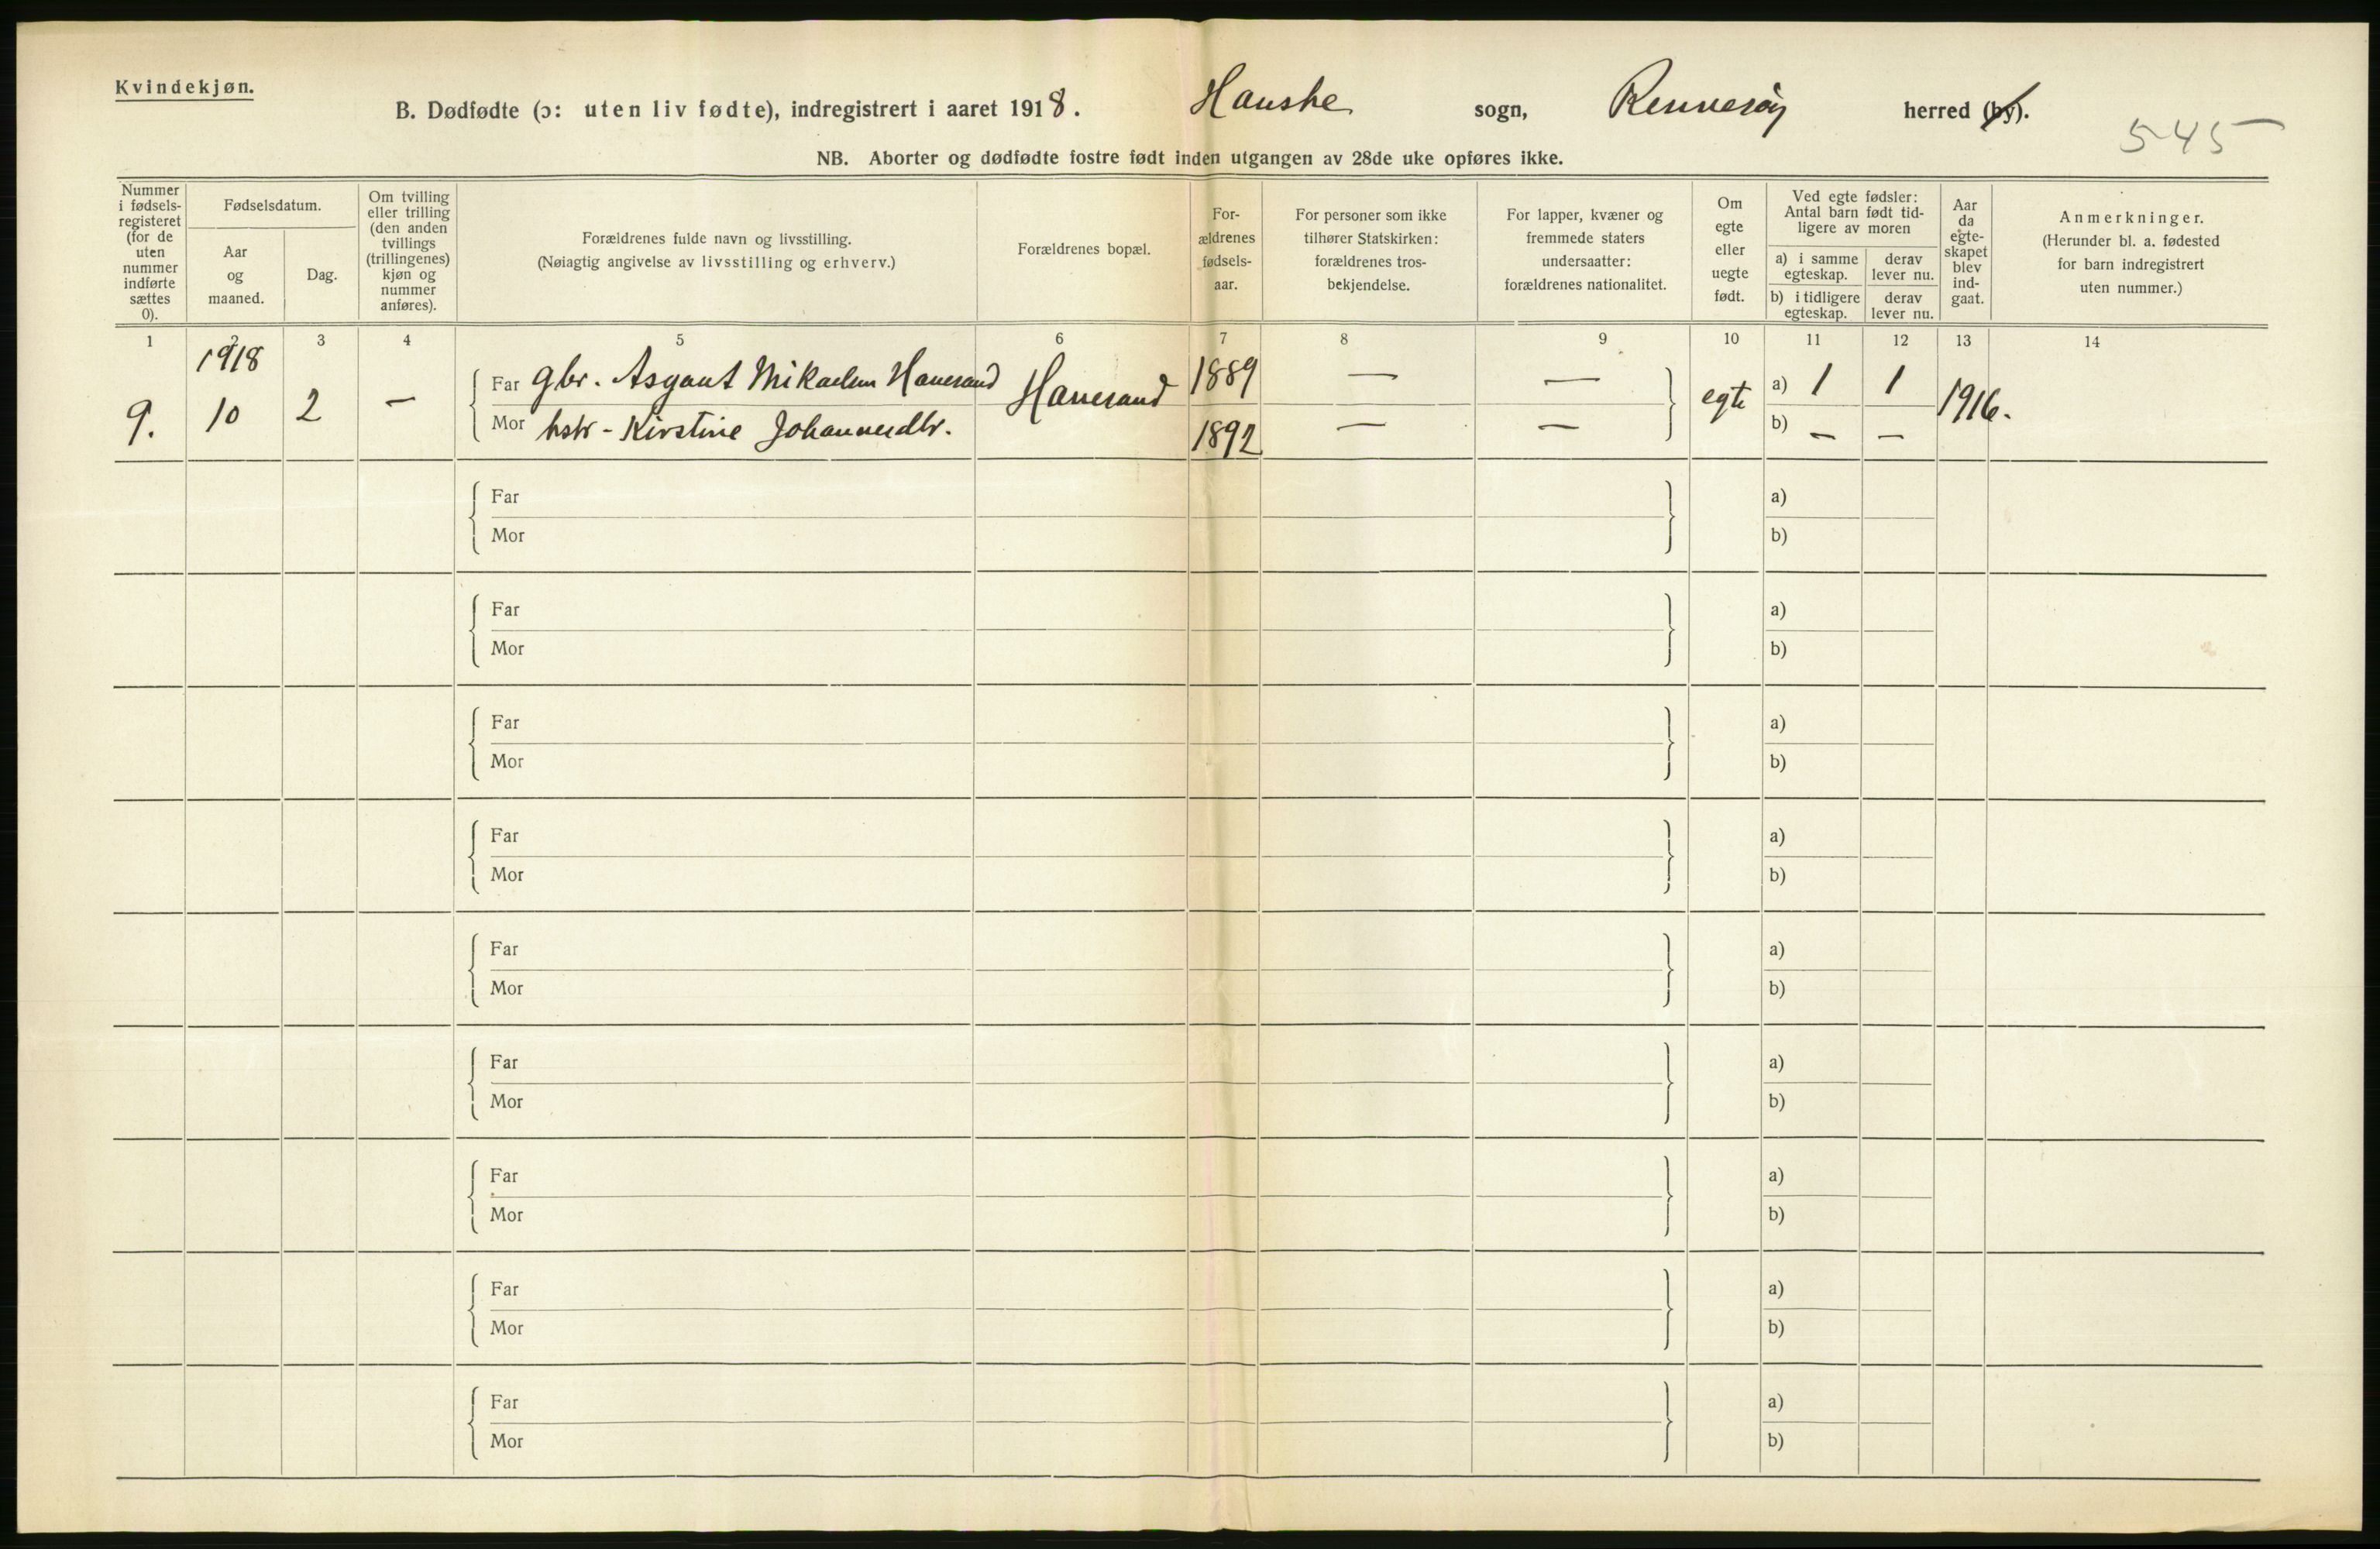 Kvindekjøn.
B. Dødfødte (ɔ: uten liv fødte), indregistrert i aaret 1918. Hauske sogn, Rennesøy herred (by).
545
NB. Aborter og dødfødte fostre født inden utgangen av 28de uke opføres ikke.
Nummer i fødsels-registeret (for de uten nummer indførte sættes 0).
Fødselsdatum.
Aar og maaned.
Dag.
Om tvilling eller trilling (den anden tvillings (trillingenes) kjøn og nummer anføres).
Forældrenes fulde navn og livsstilling.
(Nøiagtig angivelse av livsstilling og erhverv.)
Forældrenes bopæl.
For-ældrenes fødsels-aar.
For personer som ikke tilhører Statskirken: forældrenes tros-bekjendelse.
For lapper, kvæner og fremmede staters undersaatter: forældrenes nationalitet.
Om egte eller uegte født.
Ved egte fødsler: Antal barn født tid-ligere av moren
a) i samme egteskap.
derav lever nu.
b) i tidligere egteskap.
derav lever nu.
Aar da egte-skapet blev ind-gaat.
Anmerkninger.
(Herunder bl. a. fødested for barn indregistrert uten nummer.)
1 2 3 4 5 6 7 8 9 10 11 12 13 14
1918
9. 10 2 —
Far gbr. Asgaut Mikaelsen Hanesand Hanesand 1889 — — egte a) 1 1 1916.
Mor hstr - Kirstine Johannesdtr. 1892 — — b) — —
Far a)
Mor b)
Far a)
Mor b)
Far a)
Mor b)
Far a)
Mor b)
Far a)
Mor b)
Far a)
Mor b)
Far a)
Mor b)
Far a)
Mor b)
Far a)
Mor b)